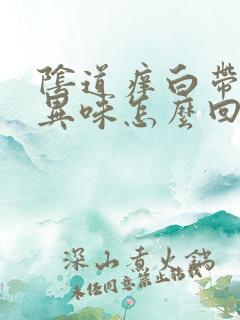 陰道痒白帶
異味怎麼回
深山煮火鍋
未經同意禁止轉載